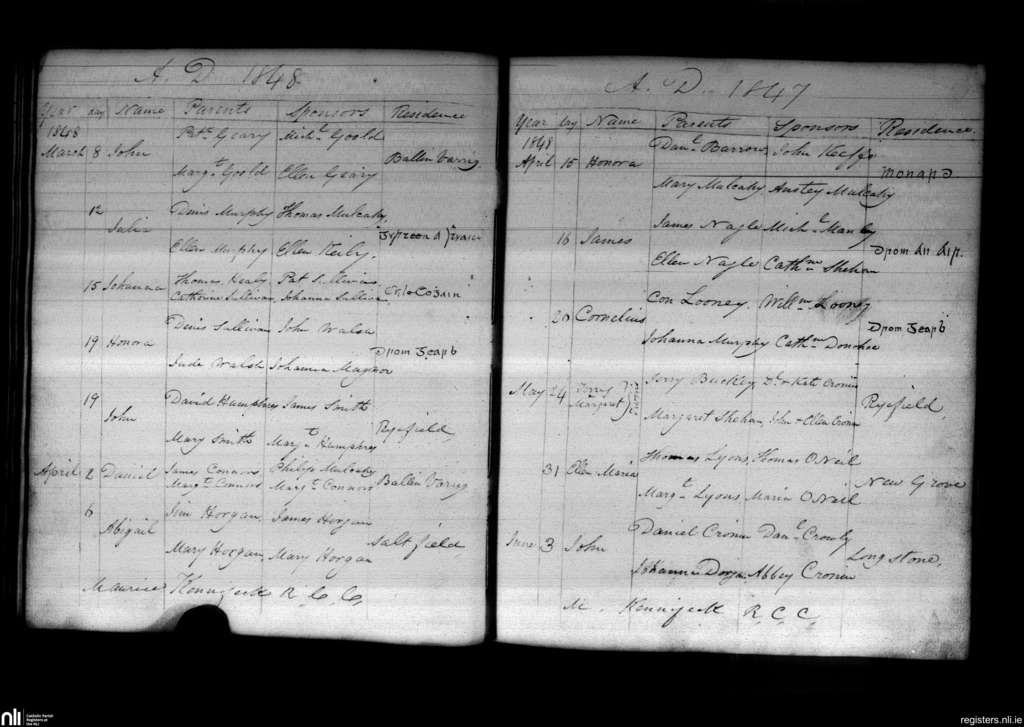 A. D. 1848.
Year day Name Parents Sponsors Residence
1848
Patk. Geary Michl. Goold
March 8 John Ballin Varrig
Margt. Goold Ellen Geary
12 Denis Murphy Thomas Mulcahy
Julia
Ellen Murphy Ellen Keily.
15 Johanna Thomas Healy Pat Sullivan
Catherine Sullivan Johanna Sullivan
Denis Sullivan John Walsh
19 Honora Drom Gearb
Jude Walsh Johanna Magner
19 David Humphres James Smith
John Ryefield,
Mary Smith Margt. Humphres
April 2 Daniel James Connors Philip Mulcahy
Margt. Connors Margt. Connors Ballin Varrig
6 Jim Horgan, James Horgan
Abigail Saltfield
Mary Horgan, Mary Horgan
Maurice Kennifeck R. C. C,
A. D. 1847
Year Day Name Parents Sponsors Residence.
1848
Danl. Barrow John Keeffe
April 15 Honora Monard
Mary Mulcahy Anstey Mulcahy
James Nagle Michl. Manley
16 James
Ellen Nagle Cathne Shehan
Con Looney. Willm Looney
20 Cornelius Drom Gearb
Johanna Murphy Cathne Donohue
May 24 Jerry Jerry Buckley Dl. & Kate Cronin
Margaret Ryefield,
Margaret Shehan, John & Ellen Cronin
Thomas Lyons, Thomas O Neil
31 Ellen Maria New Grove
Margt. Lyons Maria O Neil
Daniel Cronin Danl. Crowly
June 3 John Long stone,
Johanna Abbey Cronin
M. Kennifeck R. C. C,
nli
Catholic Parish
Registers at
the NLI
registers.nli.ie